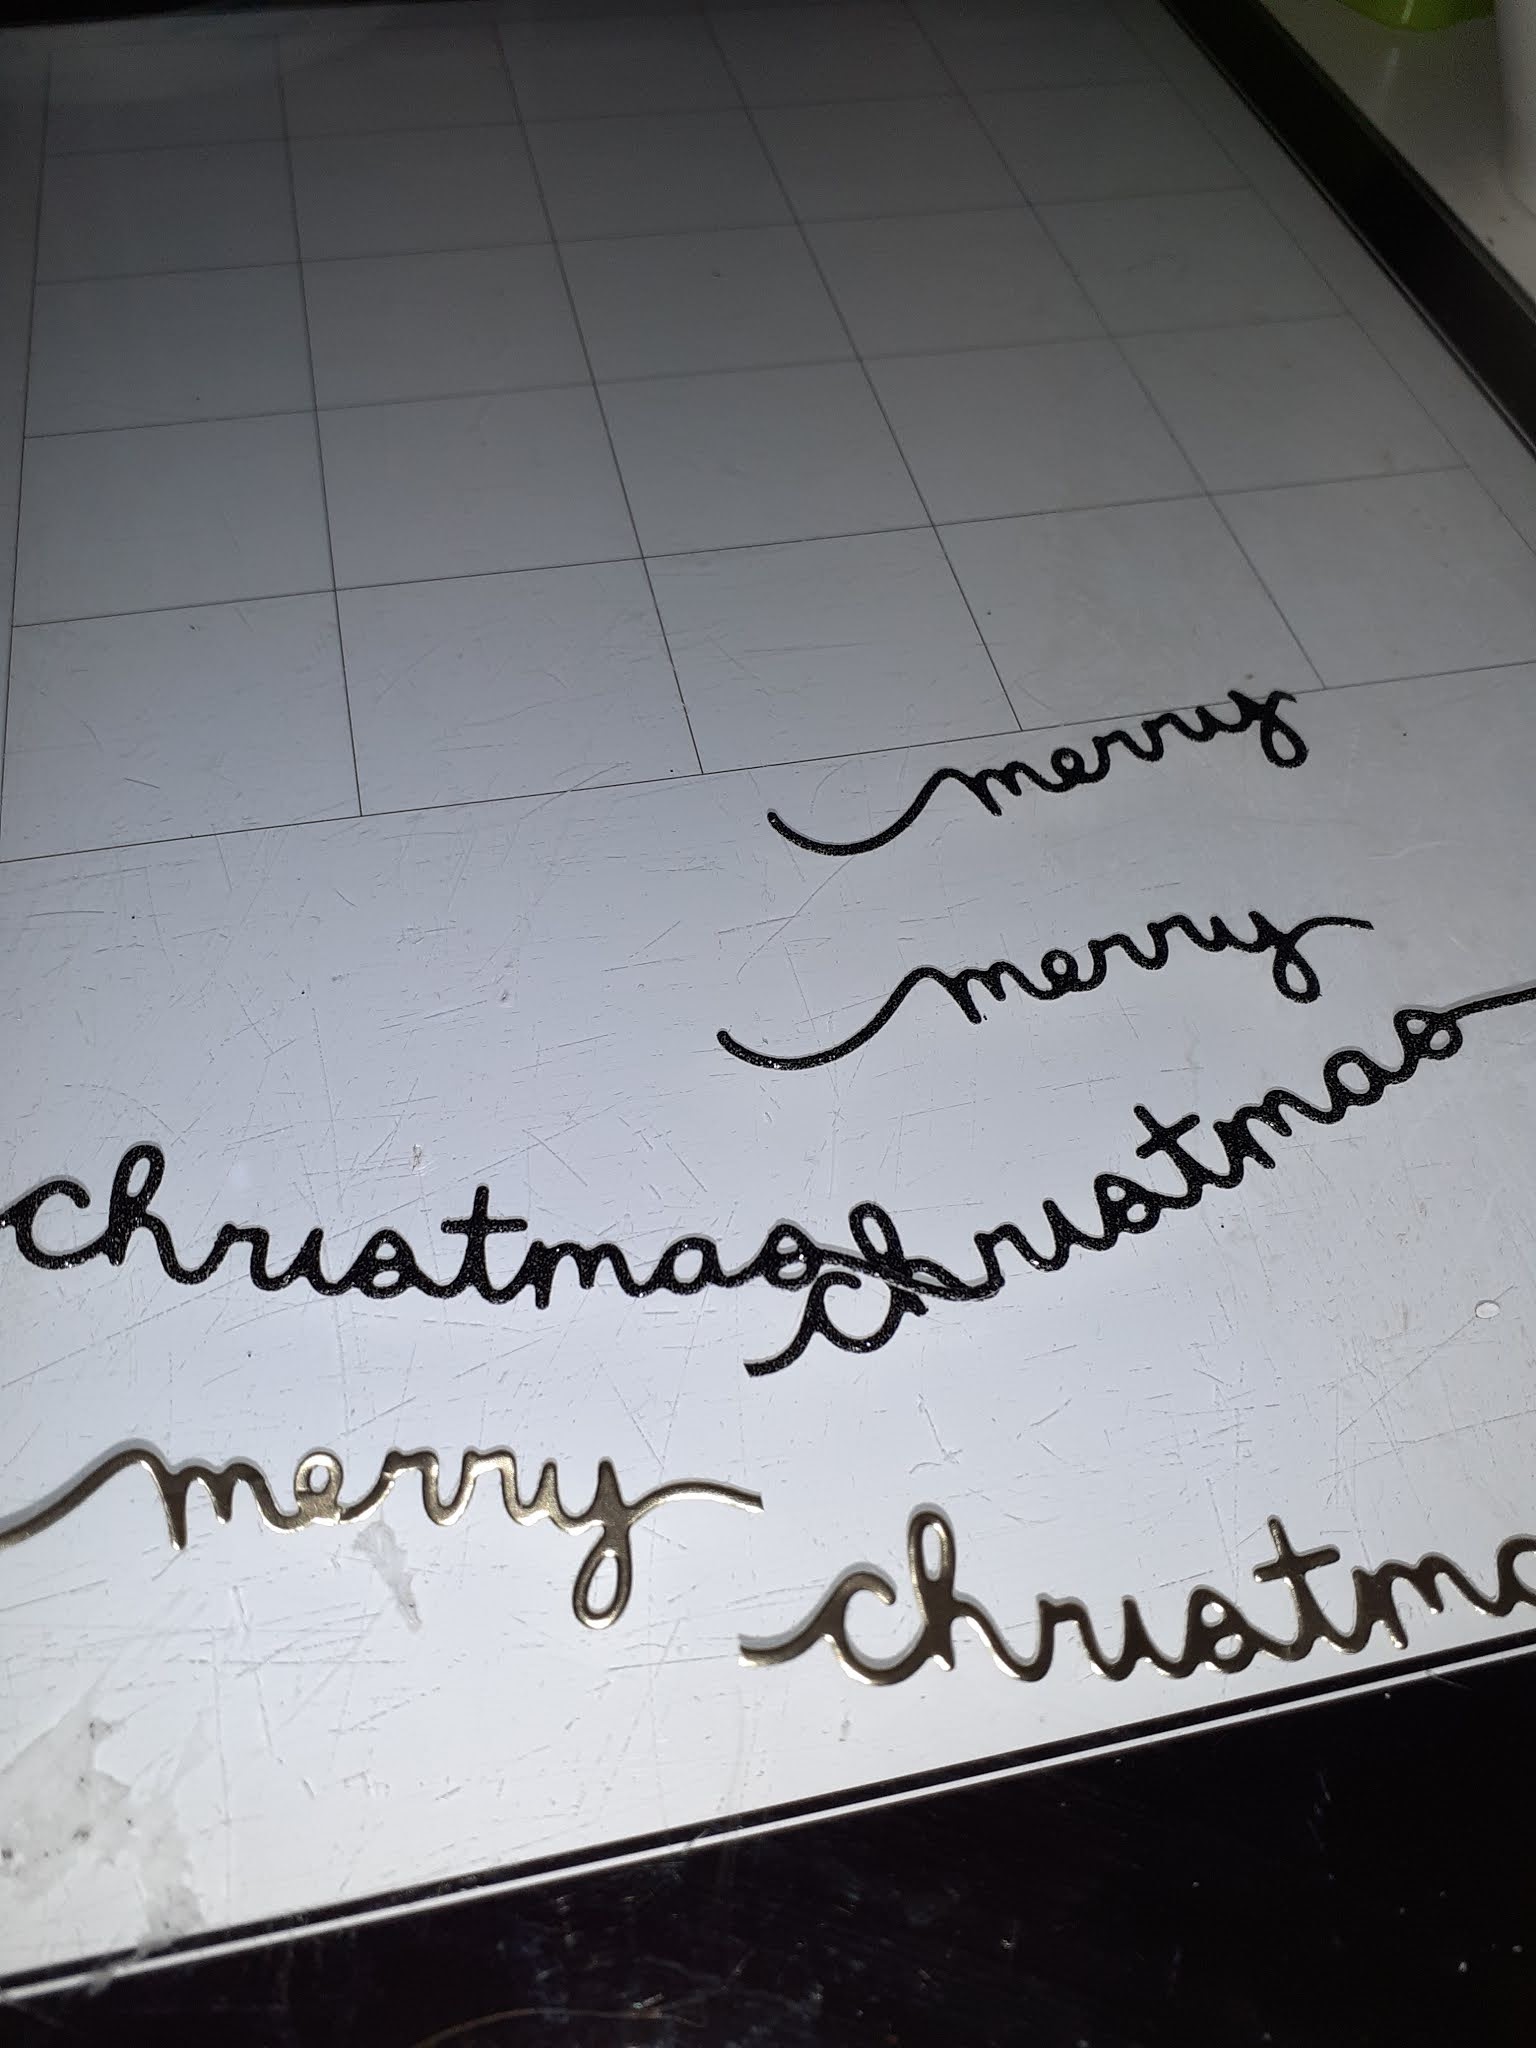 merry
merry
christmas
christmas
merry
christma